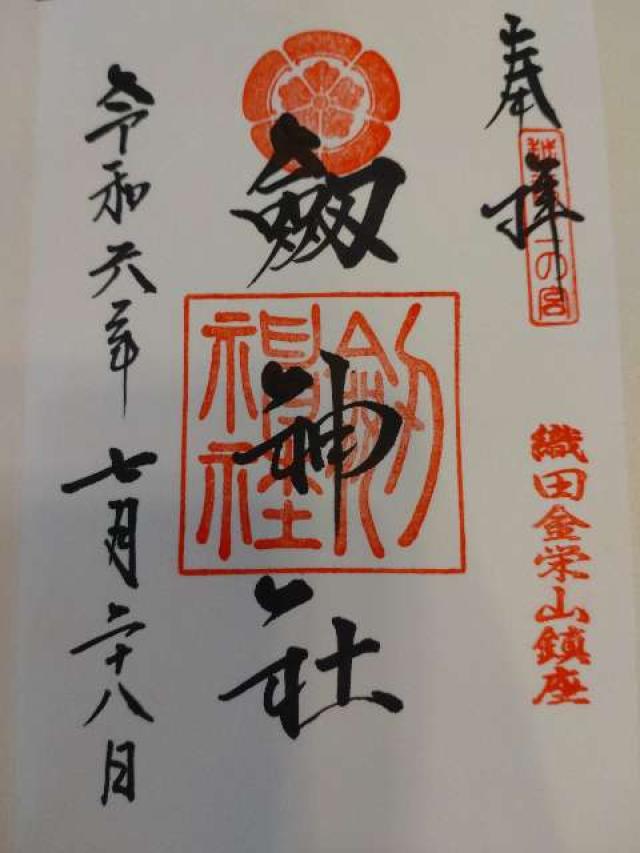 奉拝
越前二の宮
織田金栄山鎮座
劔神社
劔神社
令和六年七月二十八日